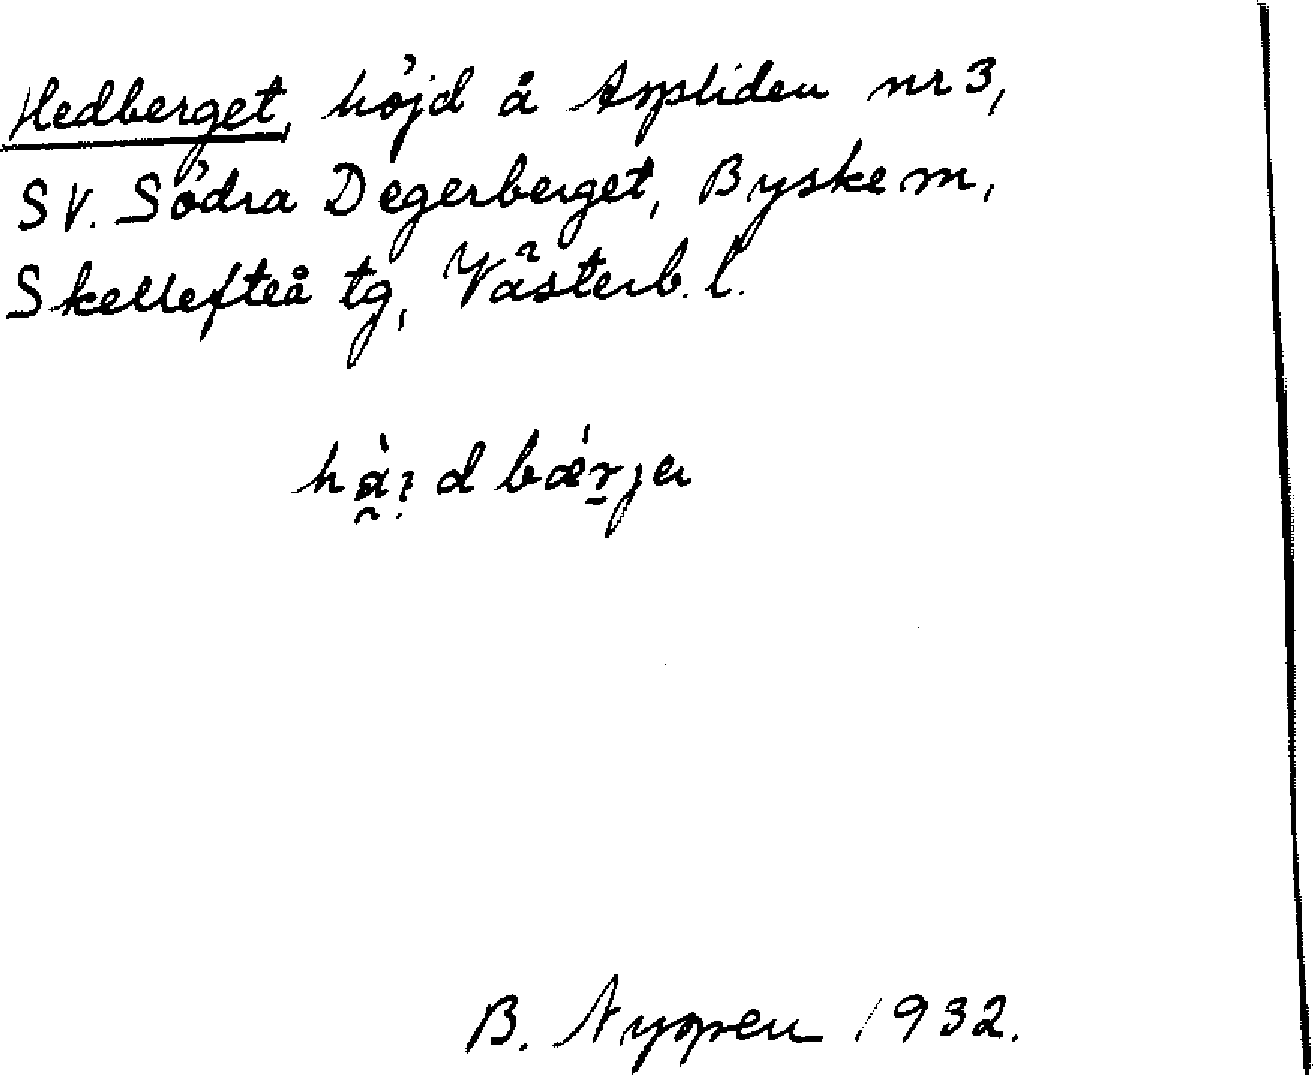 Hedberget, höjd å Aspliden nr 3,
SV. Södra Degerberget, Byske sn,
Skellefteå tg, Västerb. l.
B. Nyppen 1932.